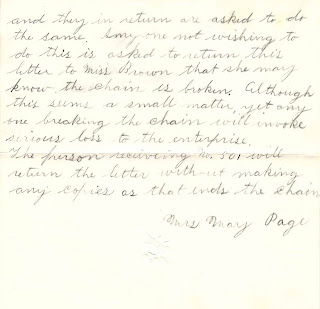 and they in return are asked to do
the same. Any one not wishing to
do this is asked to return this
letter to Miss Brown that she may
know the chain is broken. Although
this sums a small matter, yet any
one breaking the chain will invoke
serious loss to the enterprise.
The person reciveing No. 501 will
return the letter without making
any copies as that ends the chain
Mrs May Page